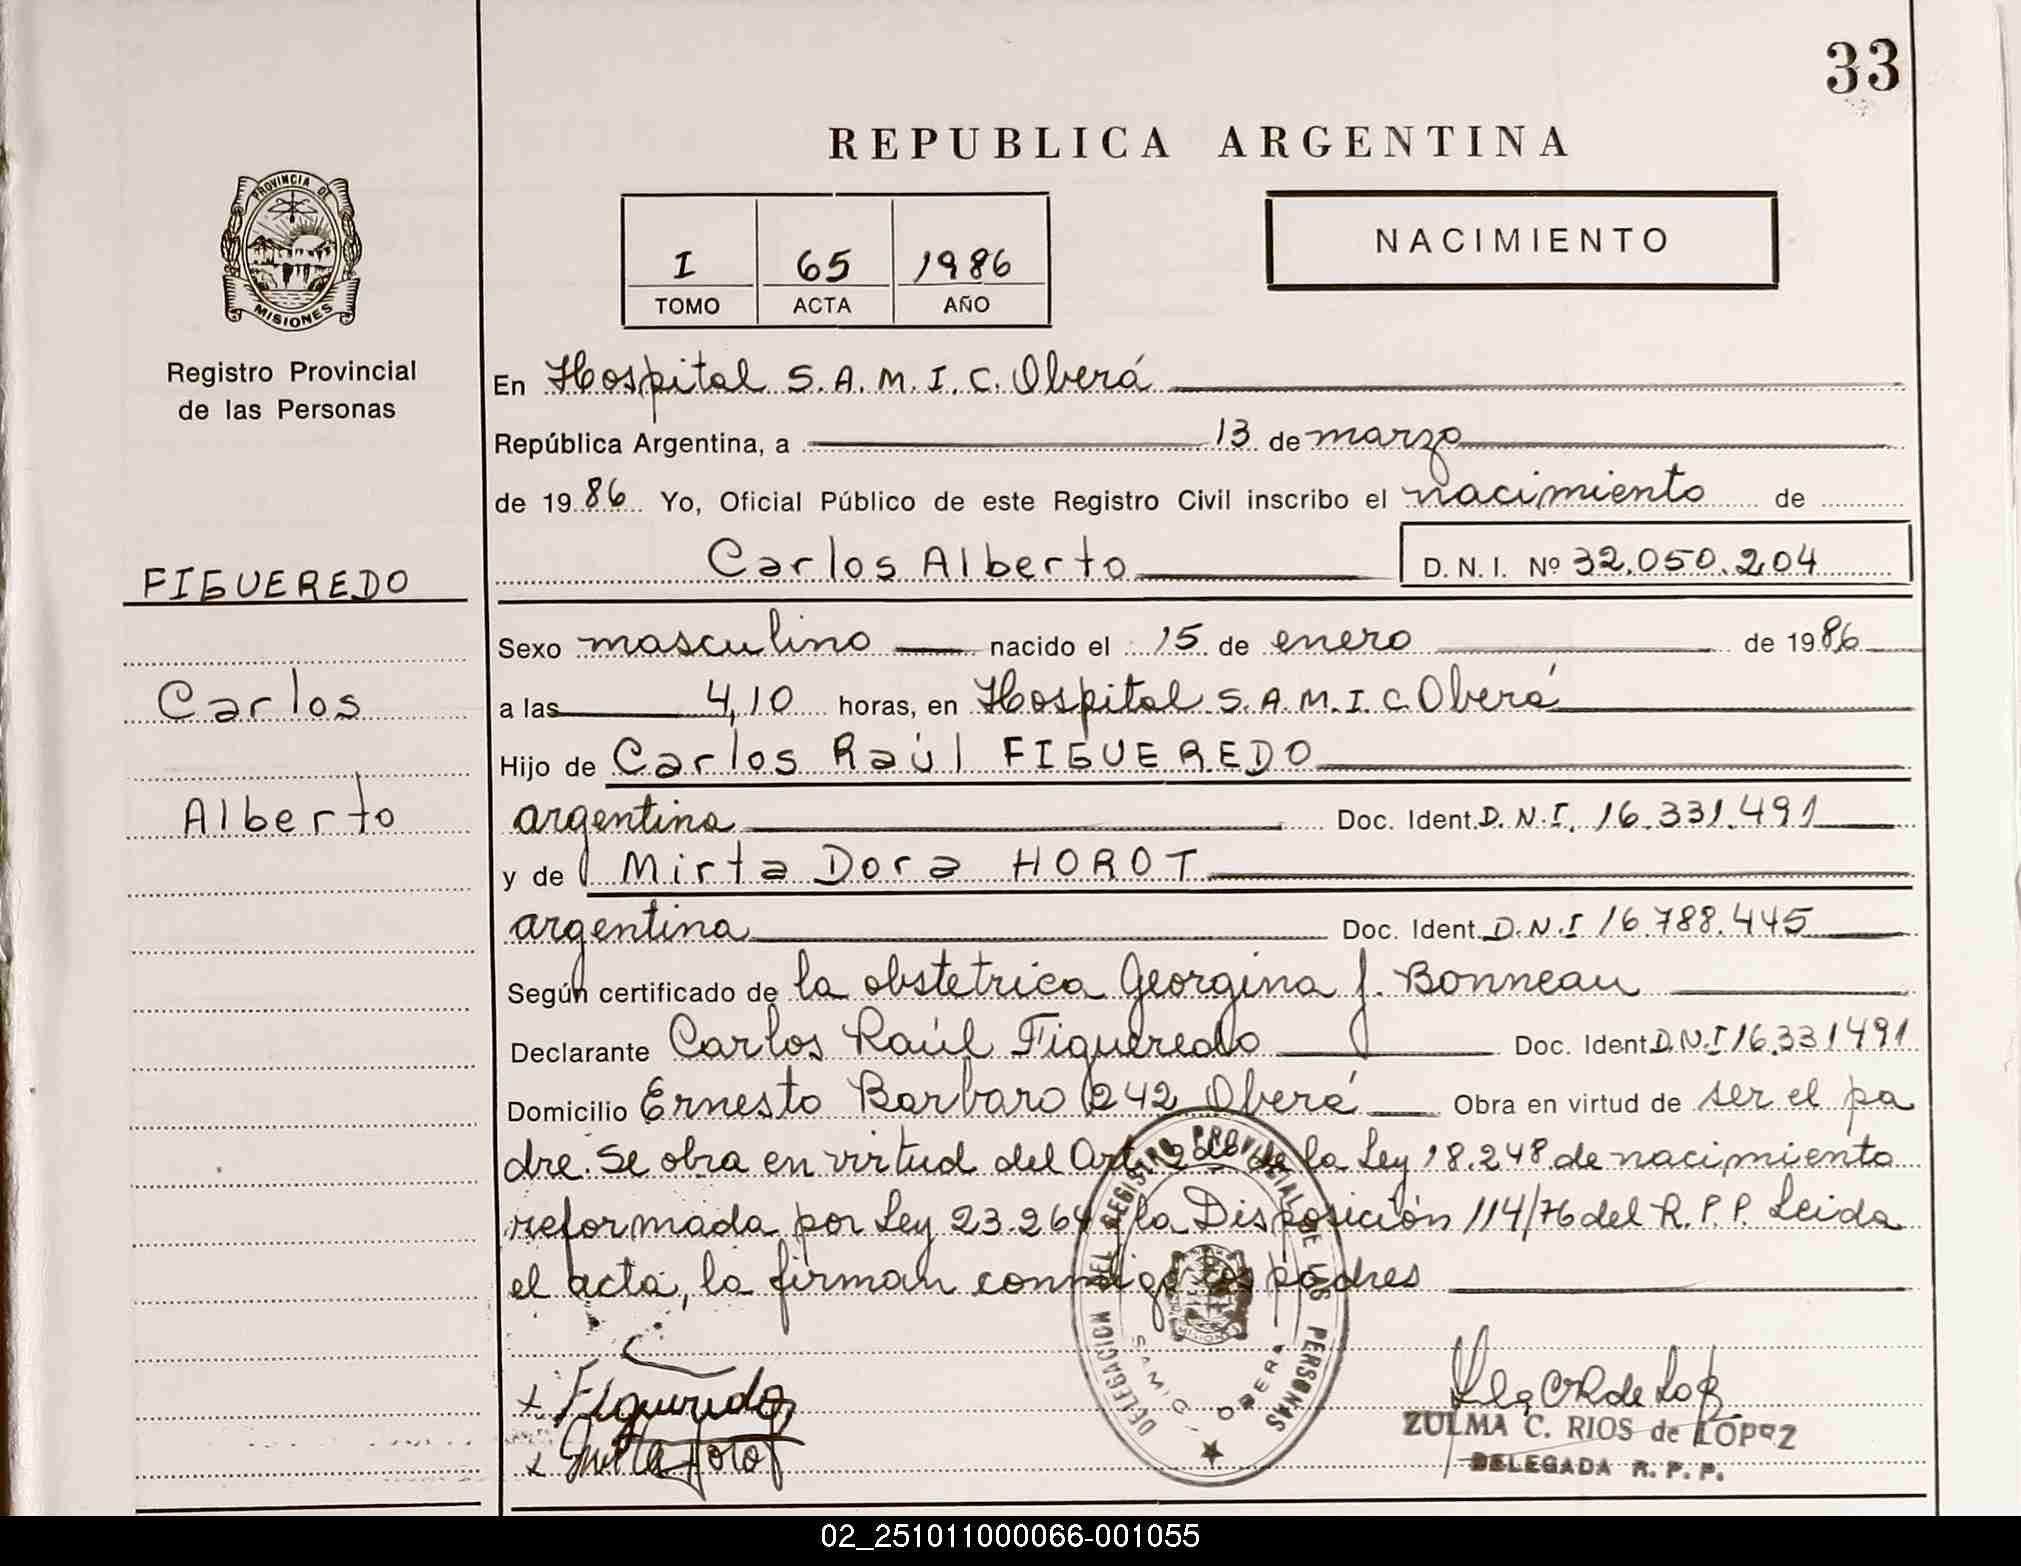 33
REPUBLICA ARGENTINA
PROVINCIA DE
MISIONES
Registro Provincial
de las Personas
I 65 1986
TOMO ACTA AÑO
NACIMIENTO
En Hospital S.A.M.I.C. Oberá
República Argentina, a 13 de marzo
de 1986 Yo, Oficial Público de este Registro Civil inscribo el nacimiento de
Carlos Alberto D. N. I. Nº 32.050.204
FIGUEREDO
Carlos
Alberto
Sexo masculino nacido el 15 de enero de 1986
a las 4,10 horas, en Hospital S.A.M.I.C Oberá
Hijo de Carlos Raúl FIGUEREDO
argentina Doc. Ident. D.N.I. 16.331.491
y de Mirta Dora HOROT
argentina Doc. Ident. D.N.I 16.788.445
Según certificado de la obstetrica Georgina J. Bonneau
Declarante Carlos Raúl Figueredo Doc. Ident D.N.I 16.331491
Domicilio Ernesto Barbaro 242 Oberá Obra en virtud de ser el pa
dre. Se obra en virtud del Art. de la Ley 18.248 de nacimiento
reformada por Ley 23.264 la Disposición 114/76 del R.P.P. Leida
el acta, la firman conmigo los padres
DELEGACION DEL REGISTRO PROVINCIAL DE LAS PERSONAS
SAMIC - OBERA
MISIONES
x Figueredo
x Mirta Horot
ZULMA C. RIOS de LOPEZ
DELEGADA R. P. P.
02_251011000066-001055